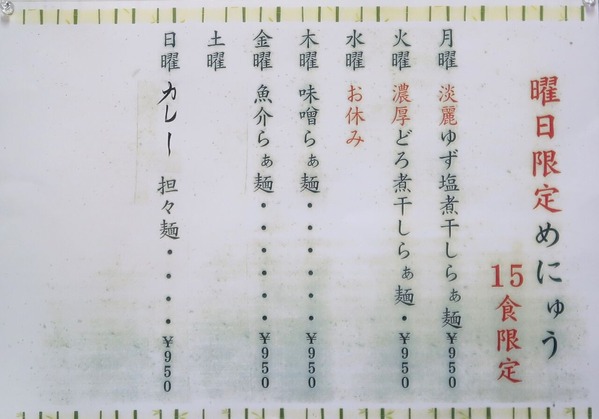 曜日限定めにゅう
15食限定
月曜 淡麗ゆず塩煮干しらぁ麺 ¥950
火曜 濃厚どろ煮干しらぁ麺・ ¥950
水曜 お休み
木曜 味噌らぁ麺・・・・・・ ¥950
金曜 魚介らぁ麺・・・・・・ ¥950
土曜
日曜 カレー 担々麺・・・・ ¥950